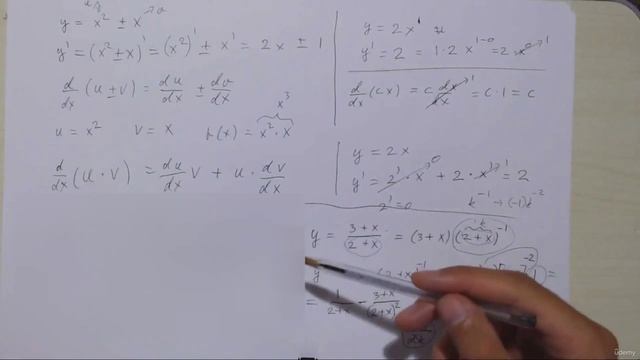 u v
y = x² ± x → v
y' = (x² ± x)' = (x²)' ± x' = 2x ± 1
d/dx (u ± v) = du/dx ± dv/dx
x³
u = x² v = x h(x) = x² · x
d/dx (u · v) = du/dx v + u · dv/dx
y = 2x¹
y' = 2 = 1 · 2 x^(1-0) = 2 · x⁰ → 1
d/dx (cx) = c dx/dx → 1 = c · 1 = c
y = 2x
y' = 2' · x → 0 + 2 · x' → 1 = 2
2' = 0
k⁻¹ → (-1)k⁻²
k
y = (3+x)/(2+x) = (3+x)(2+x)⁻¹
y
= 1/(2+x) - (3+x)/(2+x)²
udemy